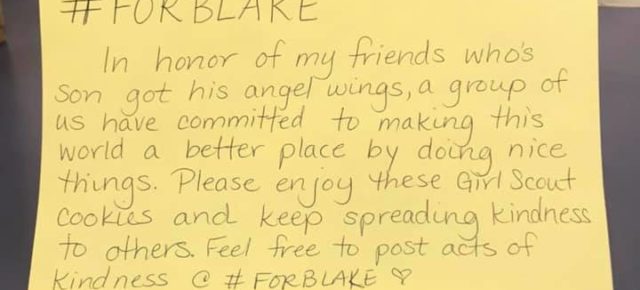 #FORBLAKE
In honor of my friends who's
son got his angel wings, a group of
us have committed to making this
world a better place by doing nice
things. Please enjoy these Girl Scout
Cookies and keep spreading kindness
to others. Feel free to post acts of
kindness @ #FORBLAKE ♡